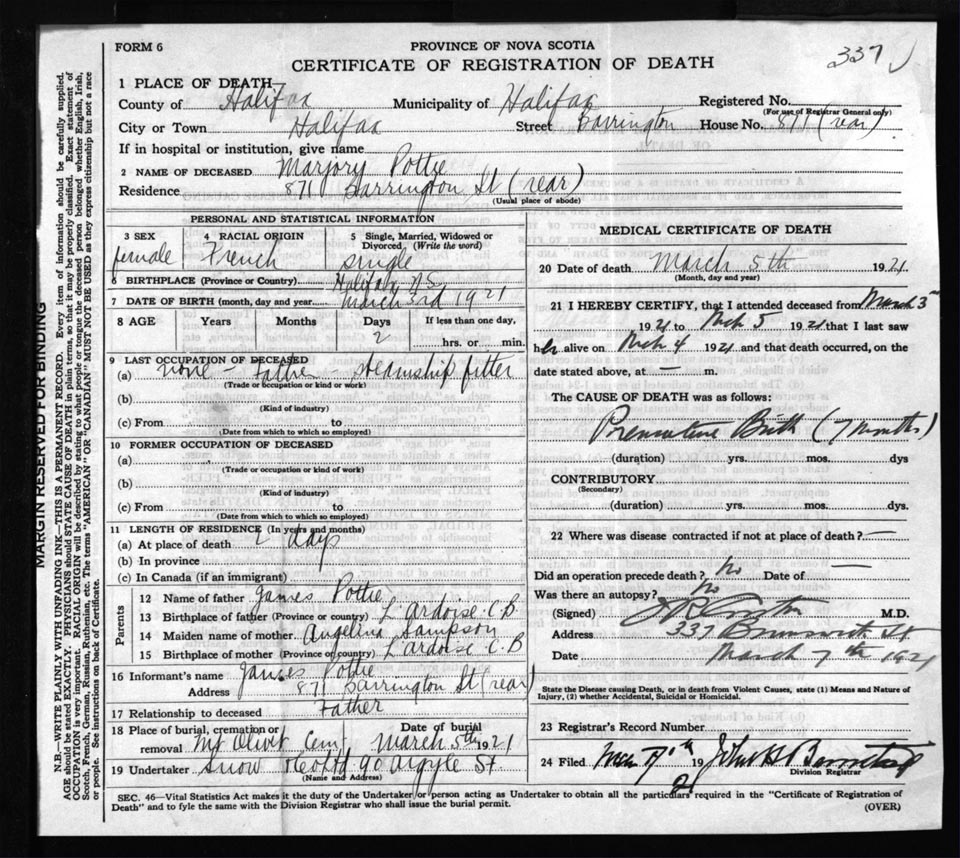 FORM 6
PROVINCE OF NOVA SCOTIA
337
CERTIFICATE OF REGISTRATION OF DEATH
1 PLACE OF DEATH—
County of Halifax Municipality of Halifax Registered No.
(For use of Registrar General only)
City or Town Halifax Street Barrington House No. 871 (rear)
If in hospital or institution, give name
2 NAME OF DECEASED Marjory Pottie
Residence 871 Barrington St (rear)
(Usual place of abode)
PERSONAL AND STATISTICAL INFORMATION
3 SEX 4 RACIAL ORIGIN 5 Single, Married, Widowed or
Divorced, (Write the word)
female French single
6 BIRTHPLACE (Province or Country) Halifax N.S
7 DATE OF BIRTH (month, day and year) March 3rd 1921
8 AGE Years Months Days If less than one day,
2 hrs. or min.
9 LAST OCCUPATION OF DECEASED
(a) none - Father - steamship fitter
(Trade or occupation or kind of work)
(b)
(Kind of industry)
(c) From to
(Date from which to which so employed)
10 FORMER OCCUPATION OF DECEASED
(a)
(Trade or occupation or kind of work)
(b)
(Kind of industry)
(c) From to
(Date from which to which so employed)
11 LENGTH OF RESIDENCE (In years and months)
(a) At place of death 2 days
(b) In province
(c) In Canada (if an immigrant)
Parents
12 Name of father James Pottie
13 Birthplace of father (Province or country) L'Ardoise C.B
14 Maiden name of mother Angelina Sampson
15 Birthplace of mother (Province or country) L'ardoise C.B
16 Informant's name James Pottie
Address 871 Barrington St (rear)
17 Relationship to deceased Father
18 Place of burial, cremation or Date of burial
removal Mt Olivet Cem March 5th 1921
19 Undertaker Snow & Co Ltd 90 Argyle St.
(Name and Address)
MEDICAL CERTIFICATE OF DEATH
20 Date of death March 5th 1921
(Month, day and year)
21 I HEREBY CERTIFY, that I attended deceased from March 3
1921 to Mch 5 1921 that I last saw
her alive on Mch 4 1921 and that death occurred, on the
date stated above, at — m.
The CAUSE OF DEATH was as follows:
Premature Birth (7 months)
(duration) yrs. mos. dys
CONTRIBUTORY
(Secondary)
(duration) yrs. mos. dys.
22 Where was disease contracted if not at place of death? —
Did an operation precede death? No Date of —
Was there an autopsy? No
(Signed) M.D.
Address 337 Brunswick St
Date March 7th 1921
State the Disease causing Death, or in death from Violent Causes, state (1) Means and Nature of
Injury, (2) whether Accidental, Suicidal or Homicidal.
23 Registrar's Record Number
24 Filed 19 John H
Division Registrar
SEC. 46—Vital Statistics Act makes it the duty of the Undertaker or person acting as Undertaker to obtain all the particulars required in the "Certificate of Registration of
Death" and to fyle the same with the Division Registrar who shall issue the burial permit.
(OVER)
MARGIN RESERVED FOR BINDING
N.B.—WRITE PLAINLY WITH UNFADING INK—THIS IS A PERMANENT RECORD. Every item of information should be carefully supplied.
AGE should be stated EXACTLY. PHYSICIANS should STATE CAUSE OF DEATH in plain terms, so that it may be properly classified. Exact statement of
OCCUPATION is very important. RACIAL ORIGIN will be described by stating to what people or tongue the deceased person belonged whether English, Irish,
Scotch, French, German, Russian, Ruthenian, etc. The terms "AMERICAN" OR "CANADIAN" MUST NOT BE USED as they express citizenship but not a race
or people. See instructions on back of Certificate.